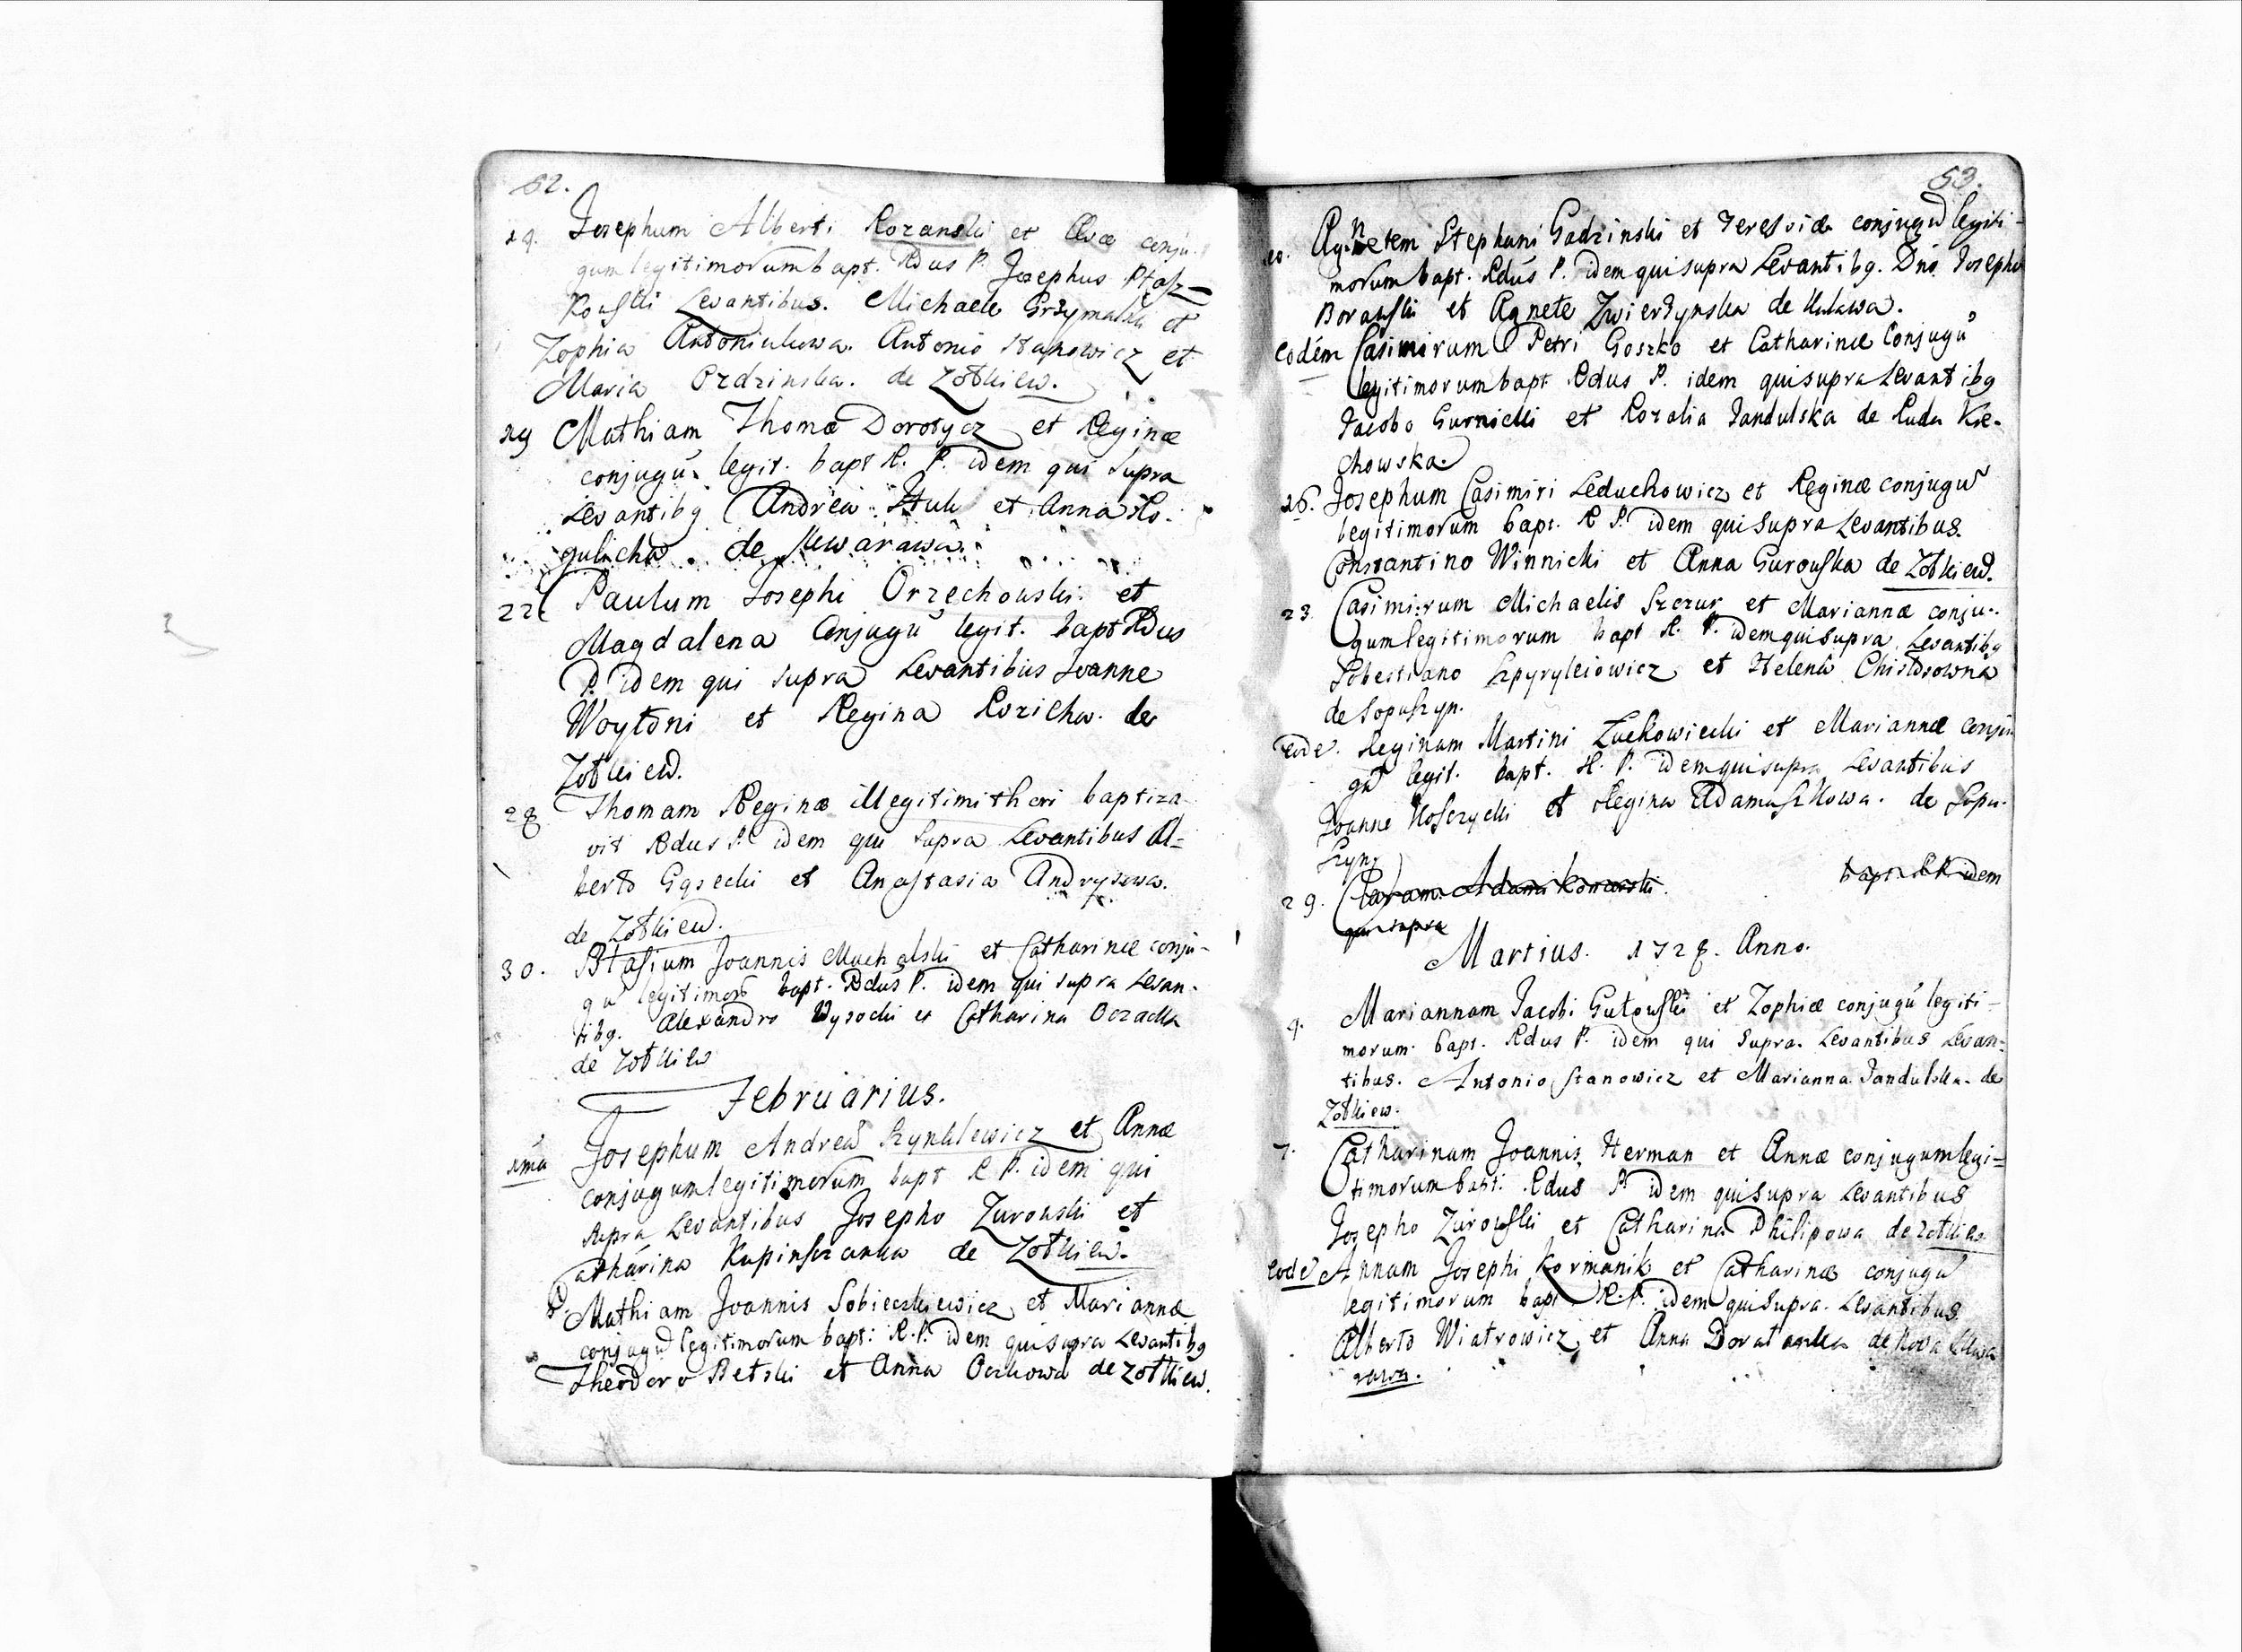 52.
19. Josephum Alberti Rozanski et Evæ conju-
gum legitimorum bapt. Rdus P. Josephus Ptasz-
Kowski Levantibus. Michaele Grzymalski et
Zophia Antoniukowa. Antonio Stanowicz et
Maria de Zołkiew.
19 Mathiam Thomæ Dorotycz et Reginæ
conjugũ legit. bapt R. P. idem qui supra
Levantibg Andrea Huk et Anna Ro-
gulicha. de
22 Paulum Josephi Orzechowski et
Magdalena Conjugũ legit. bapt Rdus
P. idem qui supra Levantibus Joanne
Woytoni et Regina Rozicha. de
Zołkiew.
28 Thomam Reginæ illegitimi thori baptiza-
vit Rdus P. idem qui supra Levantibus Al=
berto Gąsecki et Anastasia Andrysowa.
de Zołkiew.
30. Blasium Joannis Machalski et Catharinæ conju-
gũ legitimorũ bapt. Rdus P. idem qui supra Levan-
tibg. Alexandro Wysocki et Catharina Oczacka
de Zołkiew
Februarius.
1ma Josephum Andreæ Szynklewicz et Annæ
conjugum legitimorum bapt R P. idem qui
supra Levantibus Josepho Zurowski et
Catharina de Zołkiew.
Mathiam Joannis Sobieczkiewicz et Mariannæ
conjugũ legitimorum bapt: R. P. idem qui supra Levantibg
Theodoro Betski et Anna Oczkowa de Zołkiew.
53.
10. Agnetem Stephani Gadzinski et Teressiæ conjugũ legiti-
morum bapt. Rdus P. idem qui supra Levantibg. Dño Josepho
Borawski et Agnete Zwierzynska de Kulawa.
eodem Casimirum Petri Goszko et Catharinæ Conjugũ
legitimorum bapt Rdus P. idem qui supra Levantibg
Jacobo Gurnicki et Rozalia Jandulska de Ruda Kre-
chowska.
16. Josephum Casimiri Leduchowicz et Reginæ conjugũ
legitimorum bapt. R P. idem qui supra Levantibus.
Constantino Winnicki et Anna Gurowska de Zołkiew.
23 Casimirum Michaelis Szczur et Mariannæ conju-
gum legitimorum bapt R. P. idem qui supra. Levantibg
Sebestiano Szpyryleiowicz et Helena
de Sopuszyn.
eode. Reginam Martini Zuchowiecki et Mariannæ conju-
gũ legit. bapt. R. P. idem qui supra Levantibus
Joanne et Regina Adamaszkowa. de Sopu-
szyn.
29. Claram Adami Konarski. bapt. R P. idem
qui supra
Martius. 1728. Anno.
4. Mariannam Jacobi Gutowski et Zophiæ conjugũ legiti-
morum bapt. Rdus P. idem qui supra. Levantibus Levan=
tibus. Antonio Stanowicz et Marianna Jandulska. de
Zołkiew.
7. Catharinam Joannis Herman et Annæ conjugum legi=
timorum bapt: Rdus P. idem qui supra Levantibus
Josepho Zurowski et Catharina Philipowa de Zołkiew
eode Annam Josephi Kormanik et Catharinæ conjugũ
legitimorum bapt R. P. idem qui supra. Levantibus
Alberto Wiatrowicz et Anna de Nova